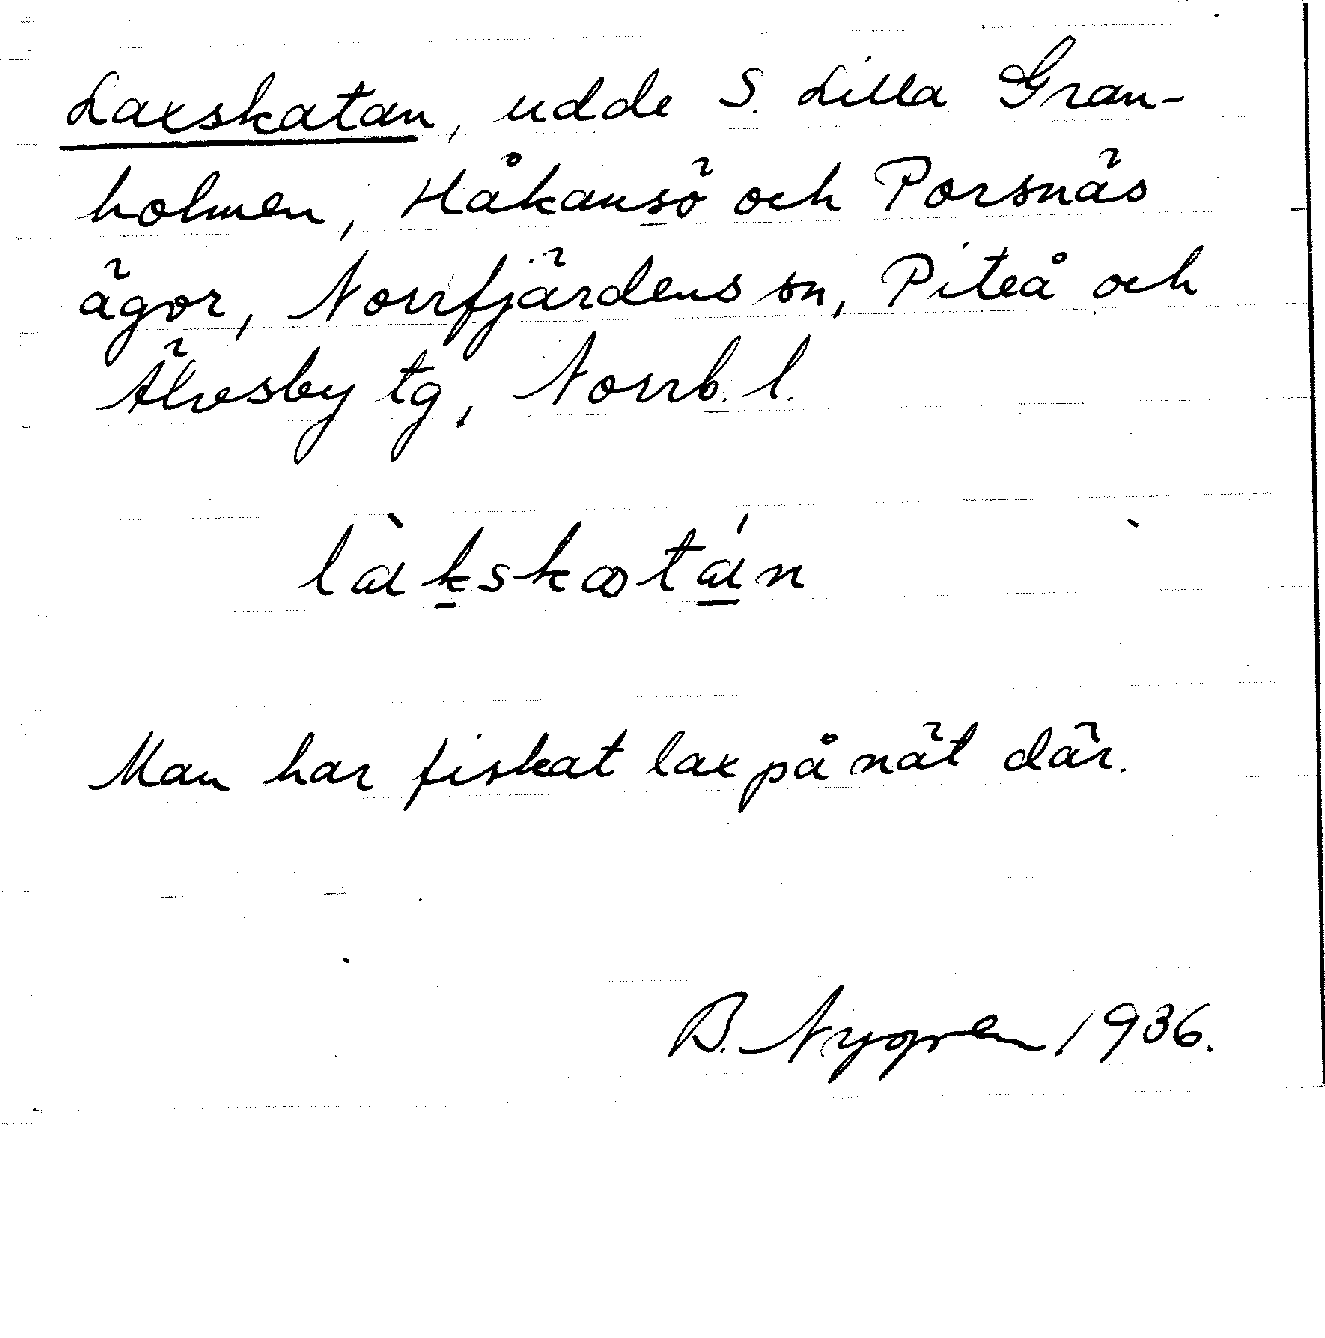 Laxskatan, udde S. Lilla Gran-
holmen, Håkansö och Porsnäs
ägor, Norrfjärdens sn, Piteå och
Älvsby tg, Norrb. l.
làkskatán
Man har fiskat lax på nät där.
B. Nygren 1936.